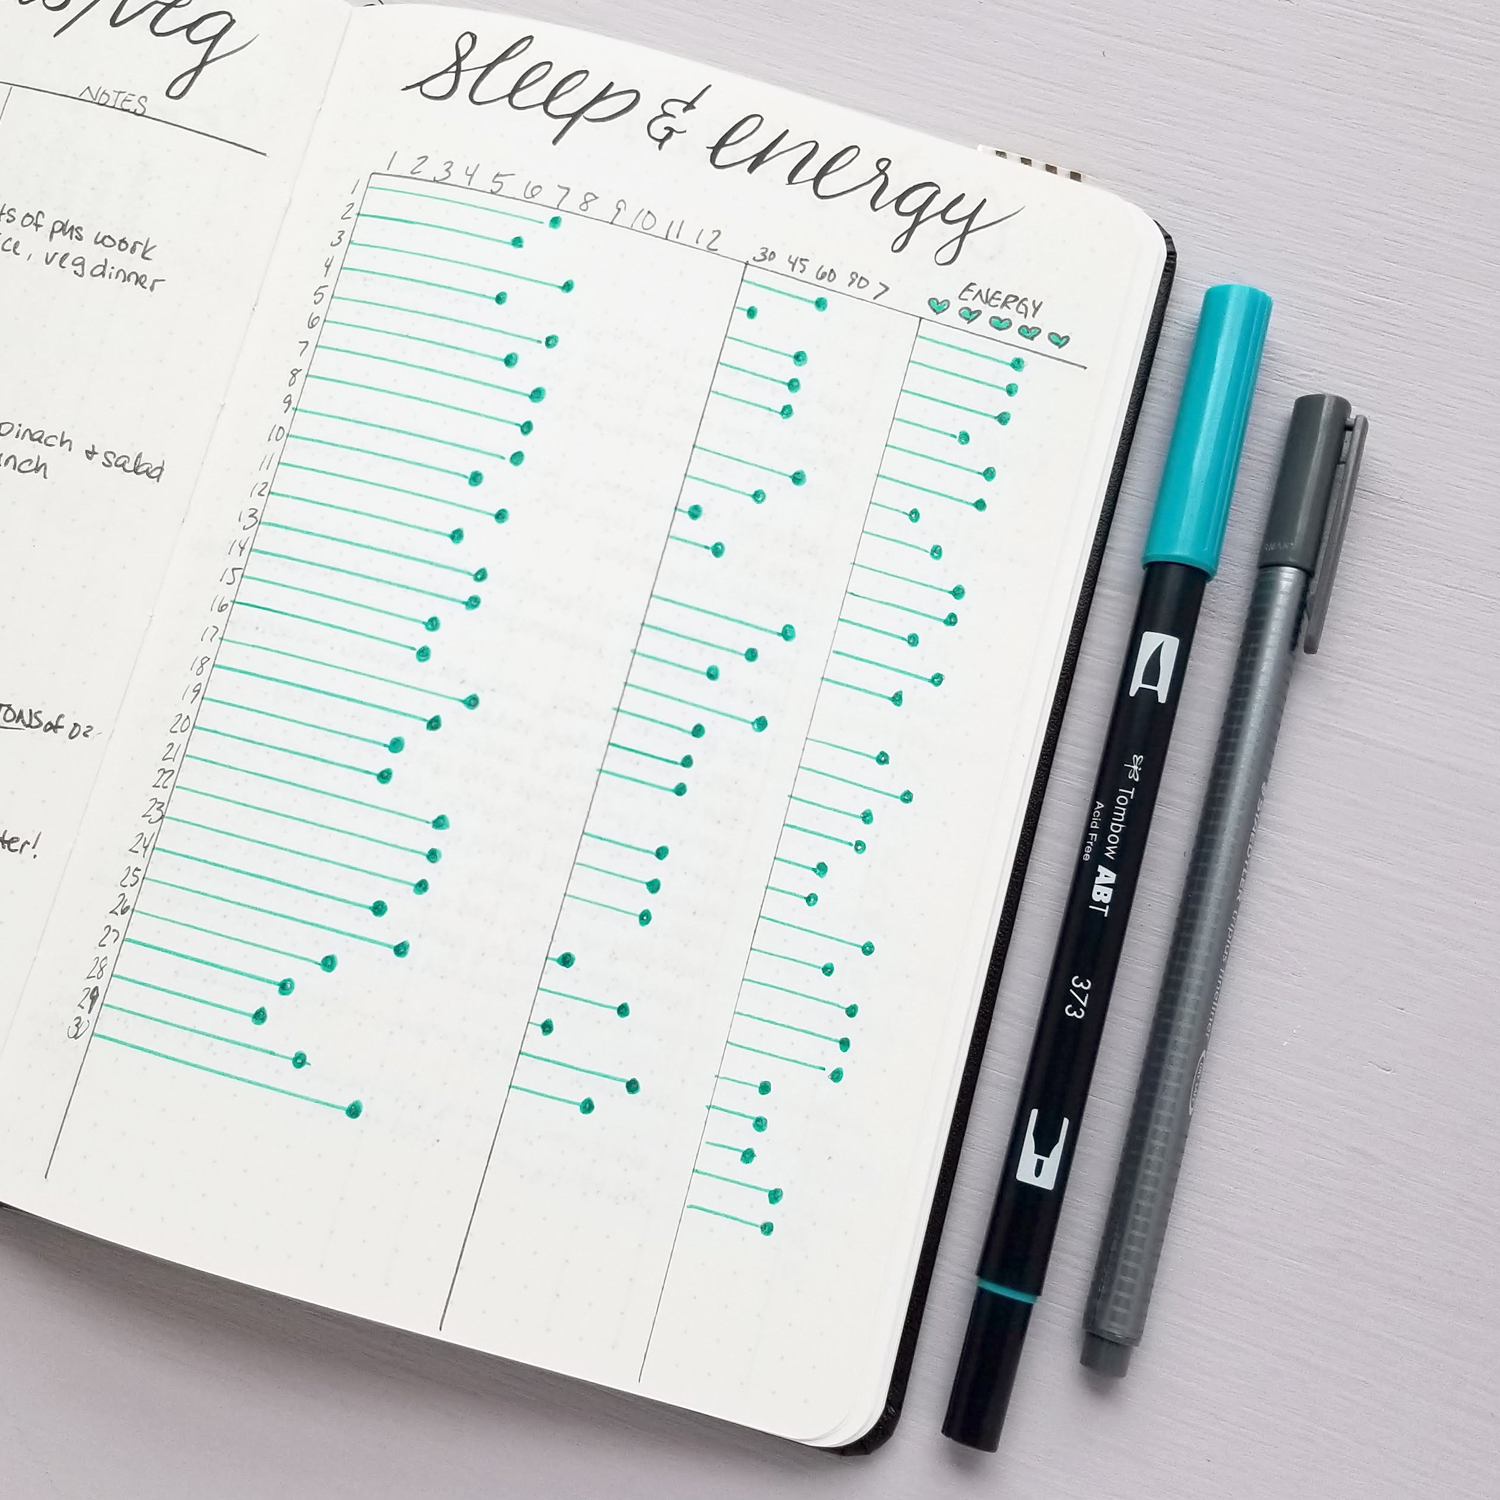 veg
NOTES
of phs work
, veg dinner
+ salad
TONS of oz
sleep & energy
1 2 3 4 5 6 7 8 9 10 11 12
30 45 60 90 >
ENERGY
1
2
3
4
5
6
7
8
9
10
11
12
13
14
15
16
17
18
19
20
21
22
23
24
25
26
27
28
29
30
Tombow ABT
Acid Free
373
STAEDTLER triplus fineliner